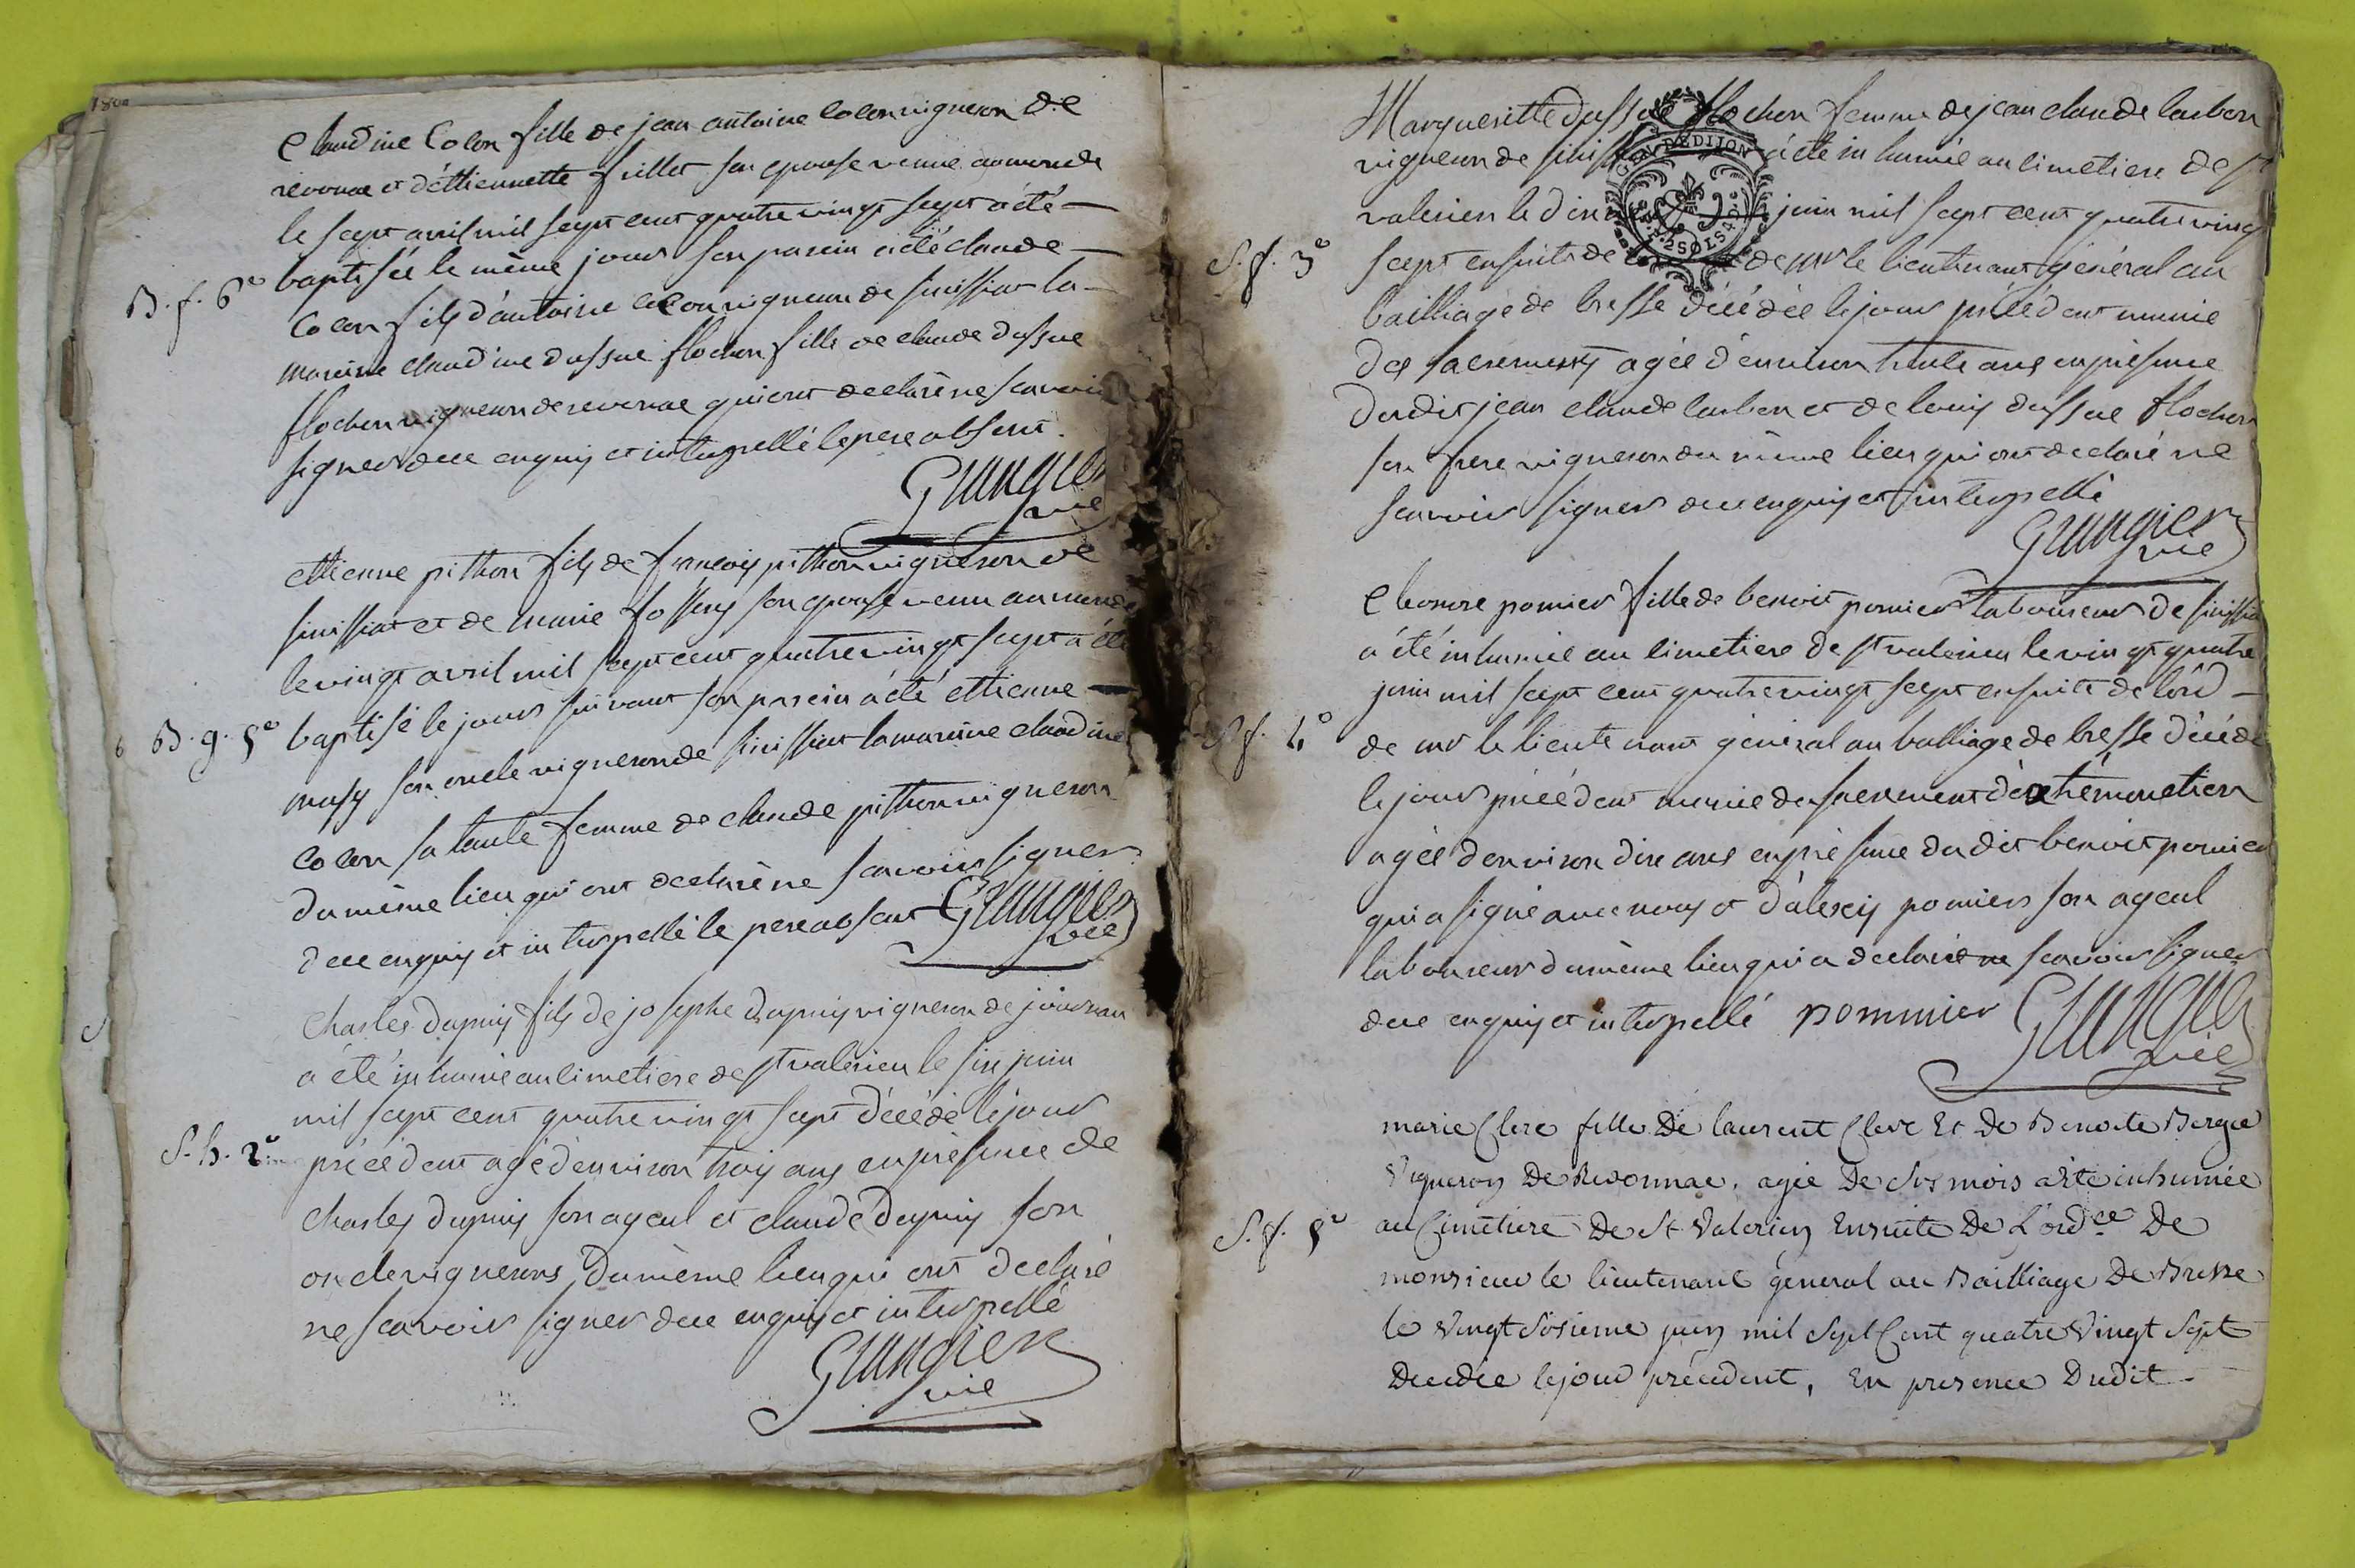 Claudine Colon fille de jean antoine Colon vigneron de
revonnas et d'ettiennette frillet son epouse venue au monde
le sept avril mil sept cent quatre vingt sept a été
B. f. 6e
baptisée le même jour son parein a été claude
Colon fils d'antoine Colon vigneron de sinissiat la
mareine claudine dussue flochon fille de claude dussue
flochon vigneron de revonas qui ont declaré ne scavoir
signer de ce enquis et interpellé le pere absent.
Grangier
vic
ettienne pithon fils de francois pithon vigneron de
sinissiat et de marie son epouse venu au monde
le vingt avril mil sept cent quatre vingt sept a été
B. g. 5e
baptisé le jour suivant son parein a été ettienne
son oncle vigneron de sinissiat la mareine claudine
Colon sa tante femme de claude pithon vigneron
du même lieu qui ont declaré ne scavoir signer
de ce enquis et interpellé le pere absent Grangier
vic
Charles dupuis fils de josephe dupuis vigneron de journan
a été inhumé au cimetiere de st valerien le six juin
mil sept cent quatre vingt sept décédé le jour
S. h. 2e
précédent agé d'environ trois ans en présence de
charles dupuis son ayeul et claude dupuis son
oncle vignerons du même lieu qui ont declaré
ne scavoir signer de ce enquis et interpellé
Grangier
vic
Margueritte dussue flochon femme de jean claude
vigneron de a été inhumée au cimetiere de st
valerien le juin mil sept cent quatre vingt
S. f. 3e
sept ensuite de de mr le lieutenant général au
bailliage de bresse décédée le jour précédent munie
des sacrements agée d'environ trente ans en présence
dudit jean claude et de louis dussue flochon
son frere vigneron du même lieu qui ont declaré ne
scavoir signer de ce enquis et interpellé
Grangier
vic
Eleonore pomier fille de benoit pomier laboureur de sinissiat
a été inhumée au cimetiere de st valerien le vingt quatre
juin mil sept cent quatre vingt sept ensuite de l'ord
S. f. 4e
de mr le lieutenant général au balliage de bresse décédée
le jour précédent munie du sacrement d'extremonction
agée d'environ dix ans en présence dudit benoit pomier
qui a signé avec nous et d'alexis pomier son ayeul
laboureur du même lieu qui a declaré ne scavoir signer
de ce enquis et interpellé pommier Grangier
vic
marie Clerc fille De laurent Clerc Et De Benoite
Vigneron De Revonnas, agée De Six mois a Eté inhumée
S. f. 5e
au Cimetiere De St Valerien Ensuite De L'ordce De
monsieur le lieutenant général au Bailliage De Bresse
le Vingt Sixieme juin mil Sept Cent quatre Vingt Sept
Decedée le jour précedent, En presence Dudit